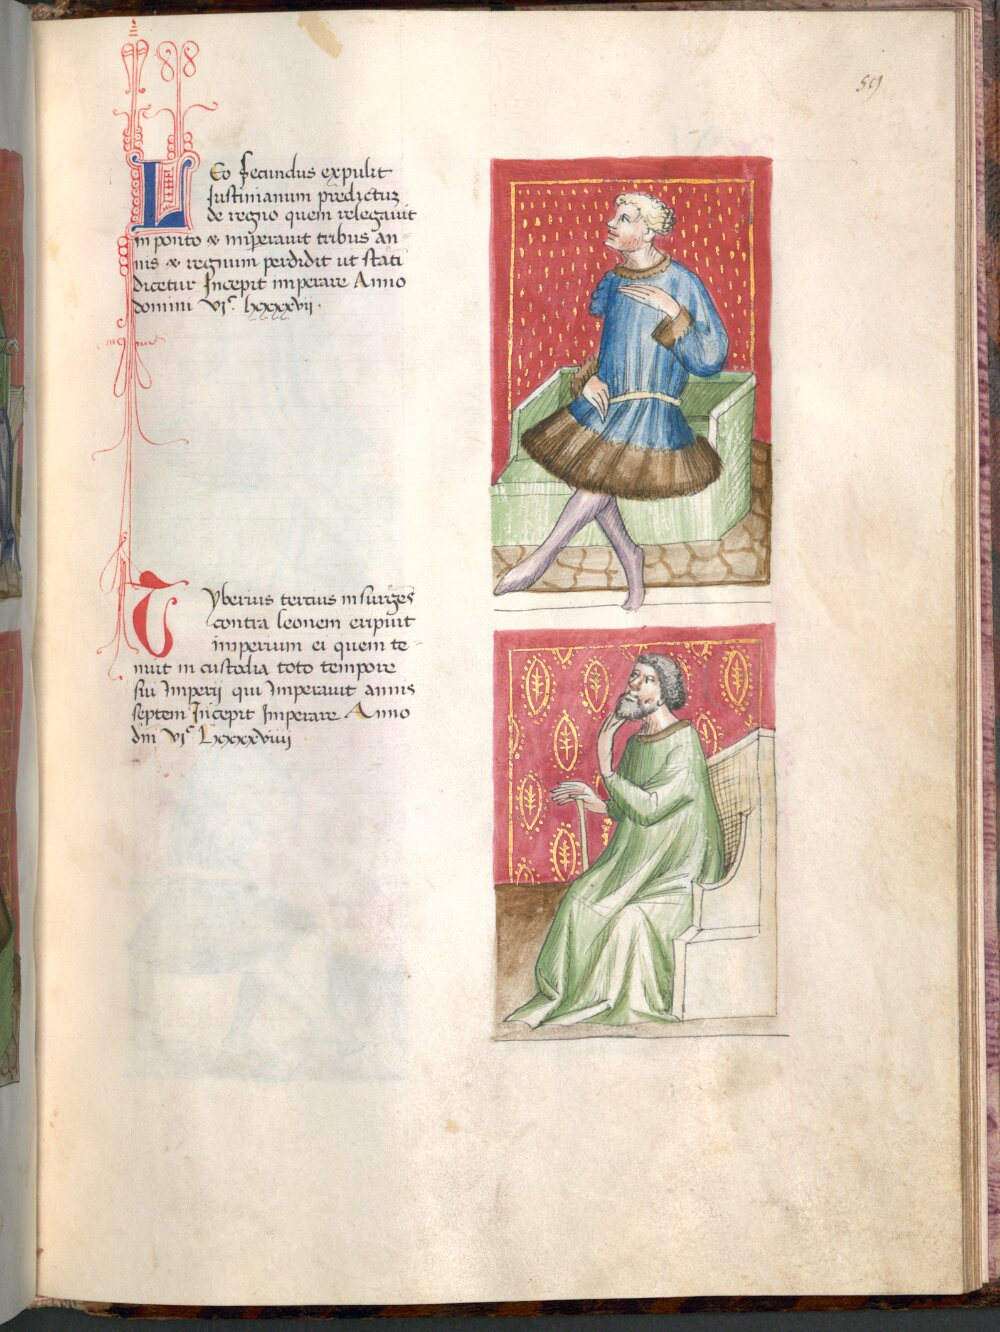 59
LEo secundus expulit
Justinianum predictuʒ
de regno quem relegauit
in ponto & imperauit tribus an-
nis & regnum perdidit ut stati
dicetur Incepit imperare Anno
domini VIᶜ. lxxxxvii.
Tyberius tercius insurgēs
contra leonem eripuit
imperium ei quem te
nuit in custodia toto tempore
sui Imperii qui Imperauit annis
septem Incepit Imperare Anno
dni VIᶜ Lxxxxviiii